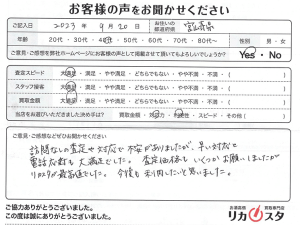 お客様の声をお聞かせください
ご記入日 2023年 9月 20日 お住いの都道府県 宮崎県
年齢 20代・30代・40代・50代・60代・70代・80代〜 性別 男・女
ご意見・ご感想を弊社ホームページにお客様の声として掲載させて頂いてもよろしいでしょうか? Yes・No
査定スピード 大満足・満足・やや満足・どちらでもない・やや不満・不満
スタッフ接客 大満足・満足・やや満足・どちらでもない・やや不満・不満
買取金額 大満足・満足・やや満足・どちらでもない・やや不満・不満
当店をお選びいただきました決め手は? 買取金額・対応力・利便性・スピード・その他( )
ご意見・ご感想などぜひお聞かせください
訪問なしの査定や対応で不安がありましたが、早い対応と
電話応対も大満足でした。査定価格もいくつかお願いしましたが
リカスタが最高値でした。今後も利用したいと思いました。
ご協力ありがとうございました。
この度は誠にありがとうございました。
お酒高価 買取専門店
リカスタ